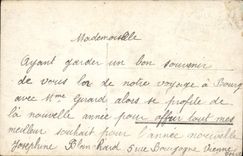 Mademoiselle
Ayant garder un bon souvenir
de vous lor de notre voyage à Bourg
avec Mme Girard alors je profite de
la nouvelle année pour offrir tout mes
meilleur souhait pour l'année nouvelle
Josephine Blanchard 5 rue Bourgogne Vienne